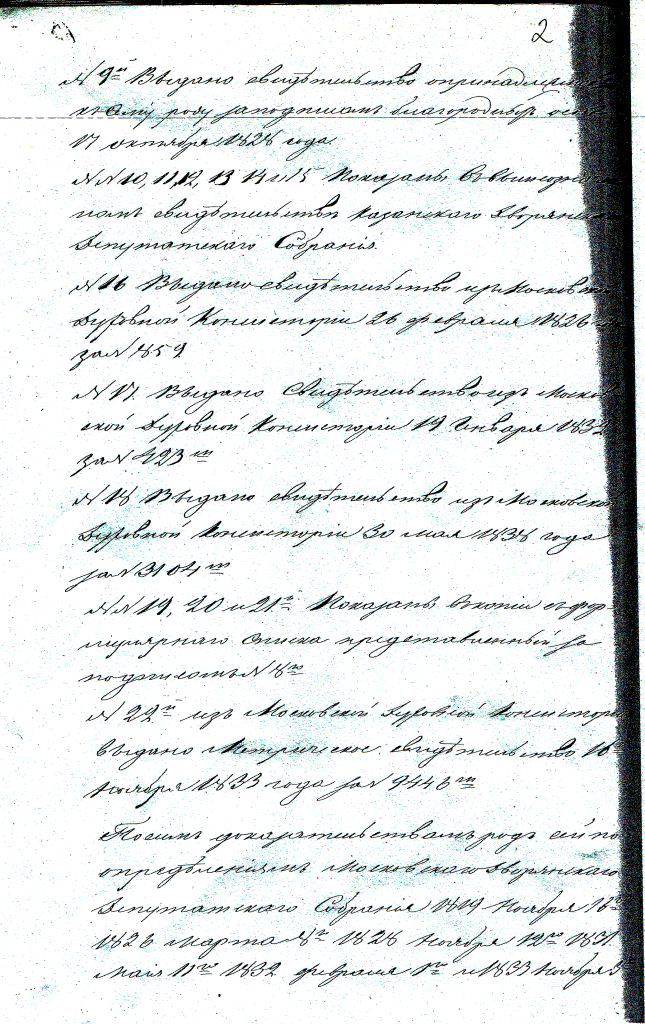 2
№ 9й Выдано свидѣтельство о принадлежн
къ сему роду за подписамъ благородныхъ особъ
17 октября 1828 года.
№№ 10, 11, 12, 13 14 и 15 Показаны въ
номъ свидѣтельствѣ Казанскаго Дворянск
Депутатскаго Собранія.
№ 16 Выдано свидѣтельство изъ Московск
Духовной Консисторіи 26 февраля 1826
за № 859
№ 17. Выдано Свидѣтельство изъ Москов
ской Духовной Консисторіи 19 Января 1832
за № 423мъ
№ 18 Выдано свидѣтельство изъ Московской
Духовной Консисторіи 30 мая 1838 года
за № 3104мъ
№№ 19, 20 и 21й Показаны въ копіи съ фор-
мулярнаго списка представленный за
подписомъ № 8мъ
№ 22й изъ Московской Духовной Консисторіи
выдано Метрическое свидѣтельство 16го
Ноября 1833 года за № 9446мъ
По симъ доказательствамъ родъ сей по
опредѣленіямъ Московскаго Дворянскаго
Депутатскаго Собранія 1819 Ноября
1826 Марта 8го 1828 Ноября 12го 1831.
Маія 11го 1832 февраля 1го и 1833 Ноября